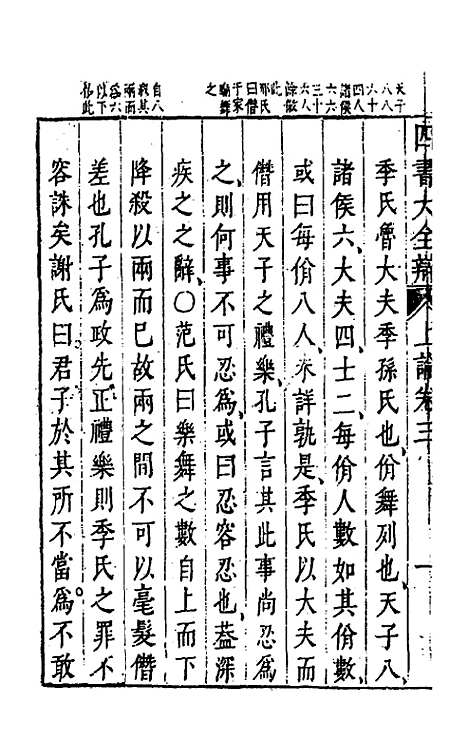 四書大全辯 上論卷三 一
天子
八八
六十
四人
諸侯
六六
三十
六人
餘倣
此
季氏
曰僣
于家
之
自八
而
兩
為六
以下
此
季氏魯大夫季孫氏也佾舞列也天子八
諸侯六大夫四士二每佾人數如其佾數
或曰每佾八人未詳孰是季氏以大夫而
僣用天子之禮樂孔子言其此事尚忍為
之則何事不可忍為或曰忍容忍也葢深
疾之之辭○范氏曰樂舞之數自上而下
降殺以兩而已故兩之間不可以毫髮僣
差也孔子為政先正禮樂則季氏之罪不
容誅矣謝氏曰君子於其所不當為不敢